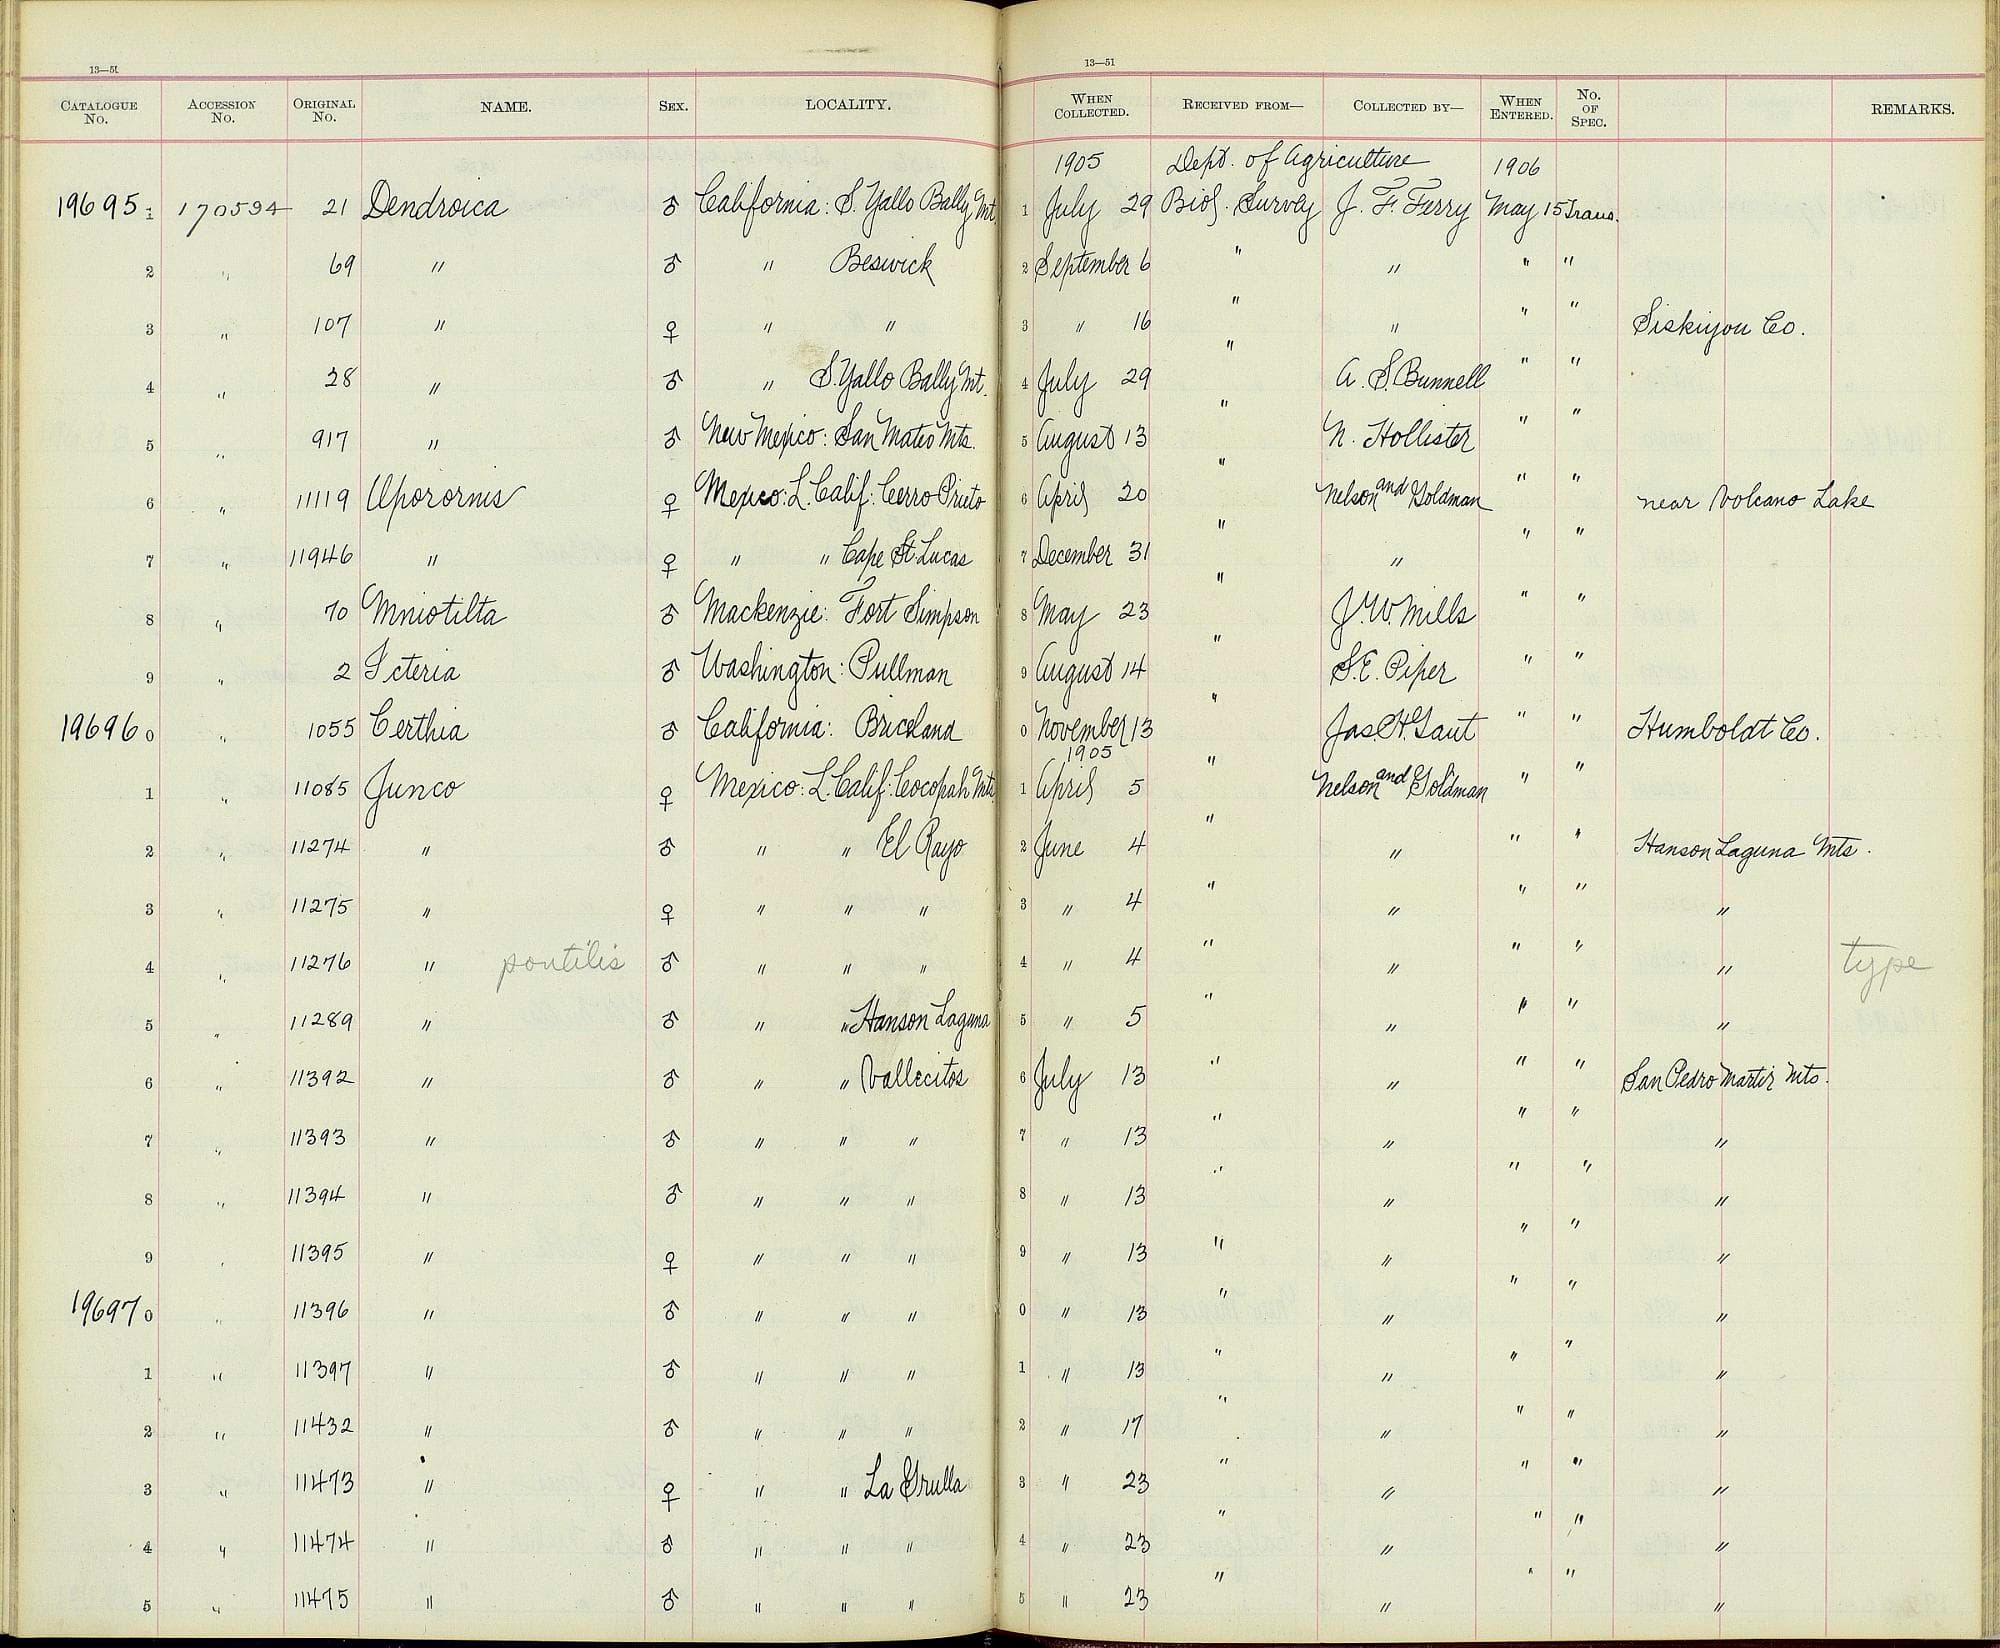 13—51 13—51
CATALOGUE No. ACCESSION No. ORIGINAL No. NAME. SEX. LOCALITY. WHEN COLLECTED. RECEIVED FROM— COLLECTED BY— WHEN ENTERED. No. OF SPEC. REMARKS.
1905 Dept. of Agriculture 1906
19695 1 170594 21 Dendroica ♂ California: S. Yallo Bally Mt. 1 July 29 Biol. Survey J. F. Ferry May 15 Trans.
2 " 69 " ♂ " Beswick 2 September 6 " " " "
3 " 107 " ♀ " " 3 " 16 " " " " Siskiyou Co.
4 " 28 " ♂ " S. Yallo Bally Mt. 4 July 29 " A. S. Bunnell " "
5 " 917 " ♂ New Mexico: San Mateo Mts. 5 August 13 " N. Hollister " "
6 " 11119 Oporornis ♀ Mexico: L. Calif: Cerro Prieto 6 April 20 " Nelson and Goldman " " near Volcano Lake
7 " 11946 " ♀ " " Cape St. Lucas 7 December 31 " " " "
8 " 70 Mniotilta ♂ Mackenzie: Fort Simpson 8 May 23 " J. W. Mills " "
9 " 2 Icteria ♂ Washington: Pullman 9 August 14 " S. E. Piper " "
19696 0 " 1055 Certhia ♂ California: Briceland 0 November 13 " Jas. H. Gaut " " Humboldt Co.
1905
1 " 11085 Junco ♀ Mexico: L. Calif: Cocopah Mts. 1 April 5 " Nelson and Goldman " "
2 " 11274 " ♂ " " El Rayo 2 June 4 " " " " Hanson Laguna Mts.
3 " 11275 " ♀ " " " 3 " 4 " " " " "
4 " 11276 " pontilis ♂ " " " 4 " 4 " " " " " type
5 " 11289 " ♂ " " Hanson Laguna 5 " 5 " " " " "
6 " 11392 " ♂ " " Vallecitos 6 July 13 " " " " San Pedro Martir Mts.
7 " 11393 " ♂ " " " 7 " 13 " " " " "
8 " 11394 " ♂ " " " 8 " 13 " " " " "
9 " 11395 " ♀ " " " 9 " 13 " " " " "
19697 0 " 11396 " ♂ " " " 0 " 13 " " " " "
1 " 11397 " ♂ " " " 1 " 13 " " " " "
2 " 11432 " ♂ " " " 2 " 17 " " " " "
3 " 11473 " ♀ " " La Grulla 3 " 23 " " " " "
4 " 11474 " ♂ " " " 4 " 23 " " " " "
5 " 11475 " ♂ " " " 5 " 23 " " " " "